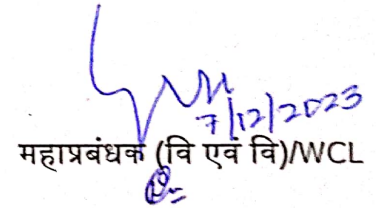 7/12/2023
महाप्रबंधक (वि एवं वि)/WCL